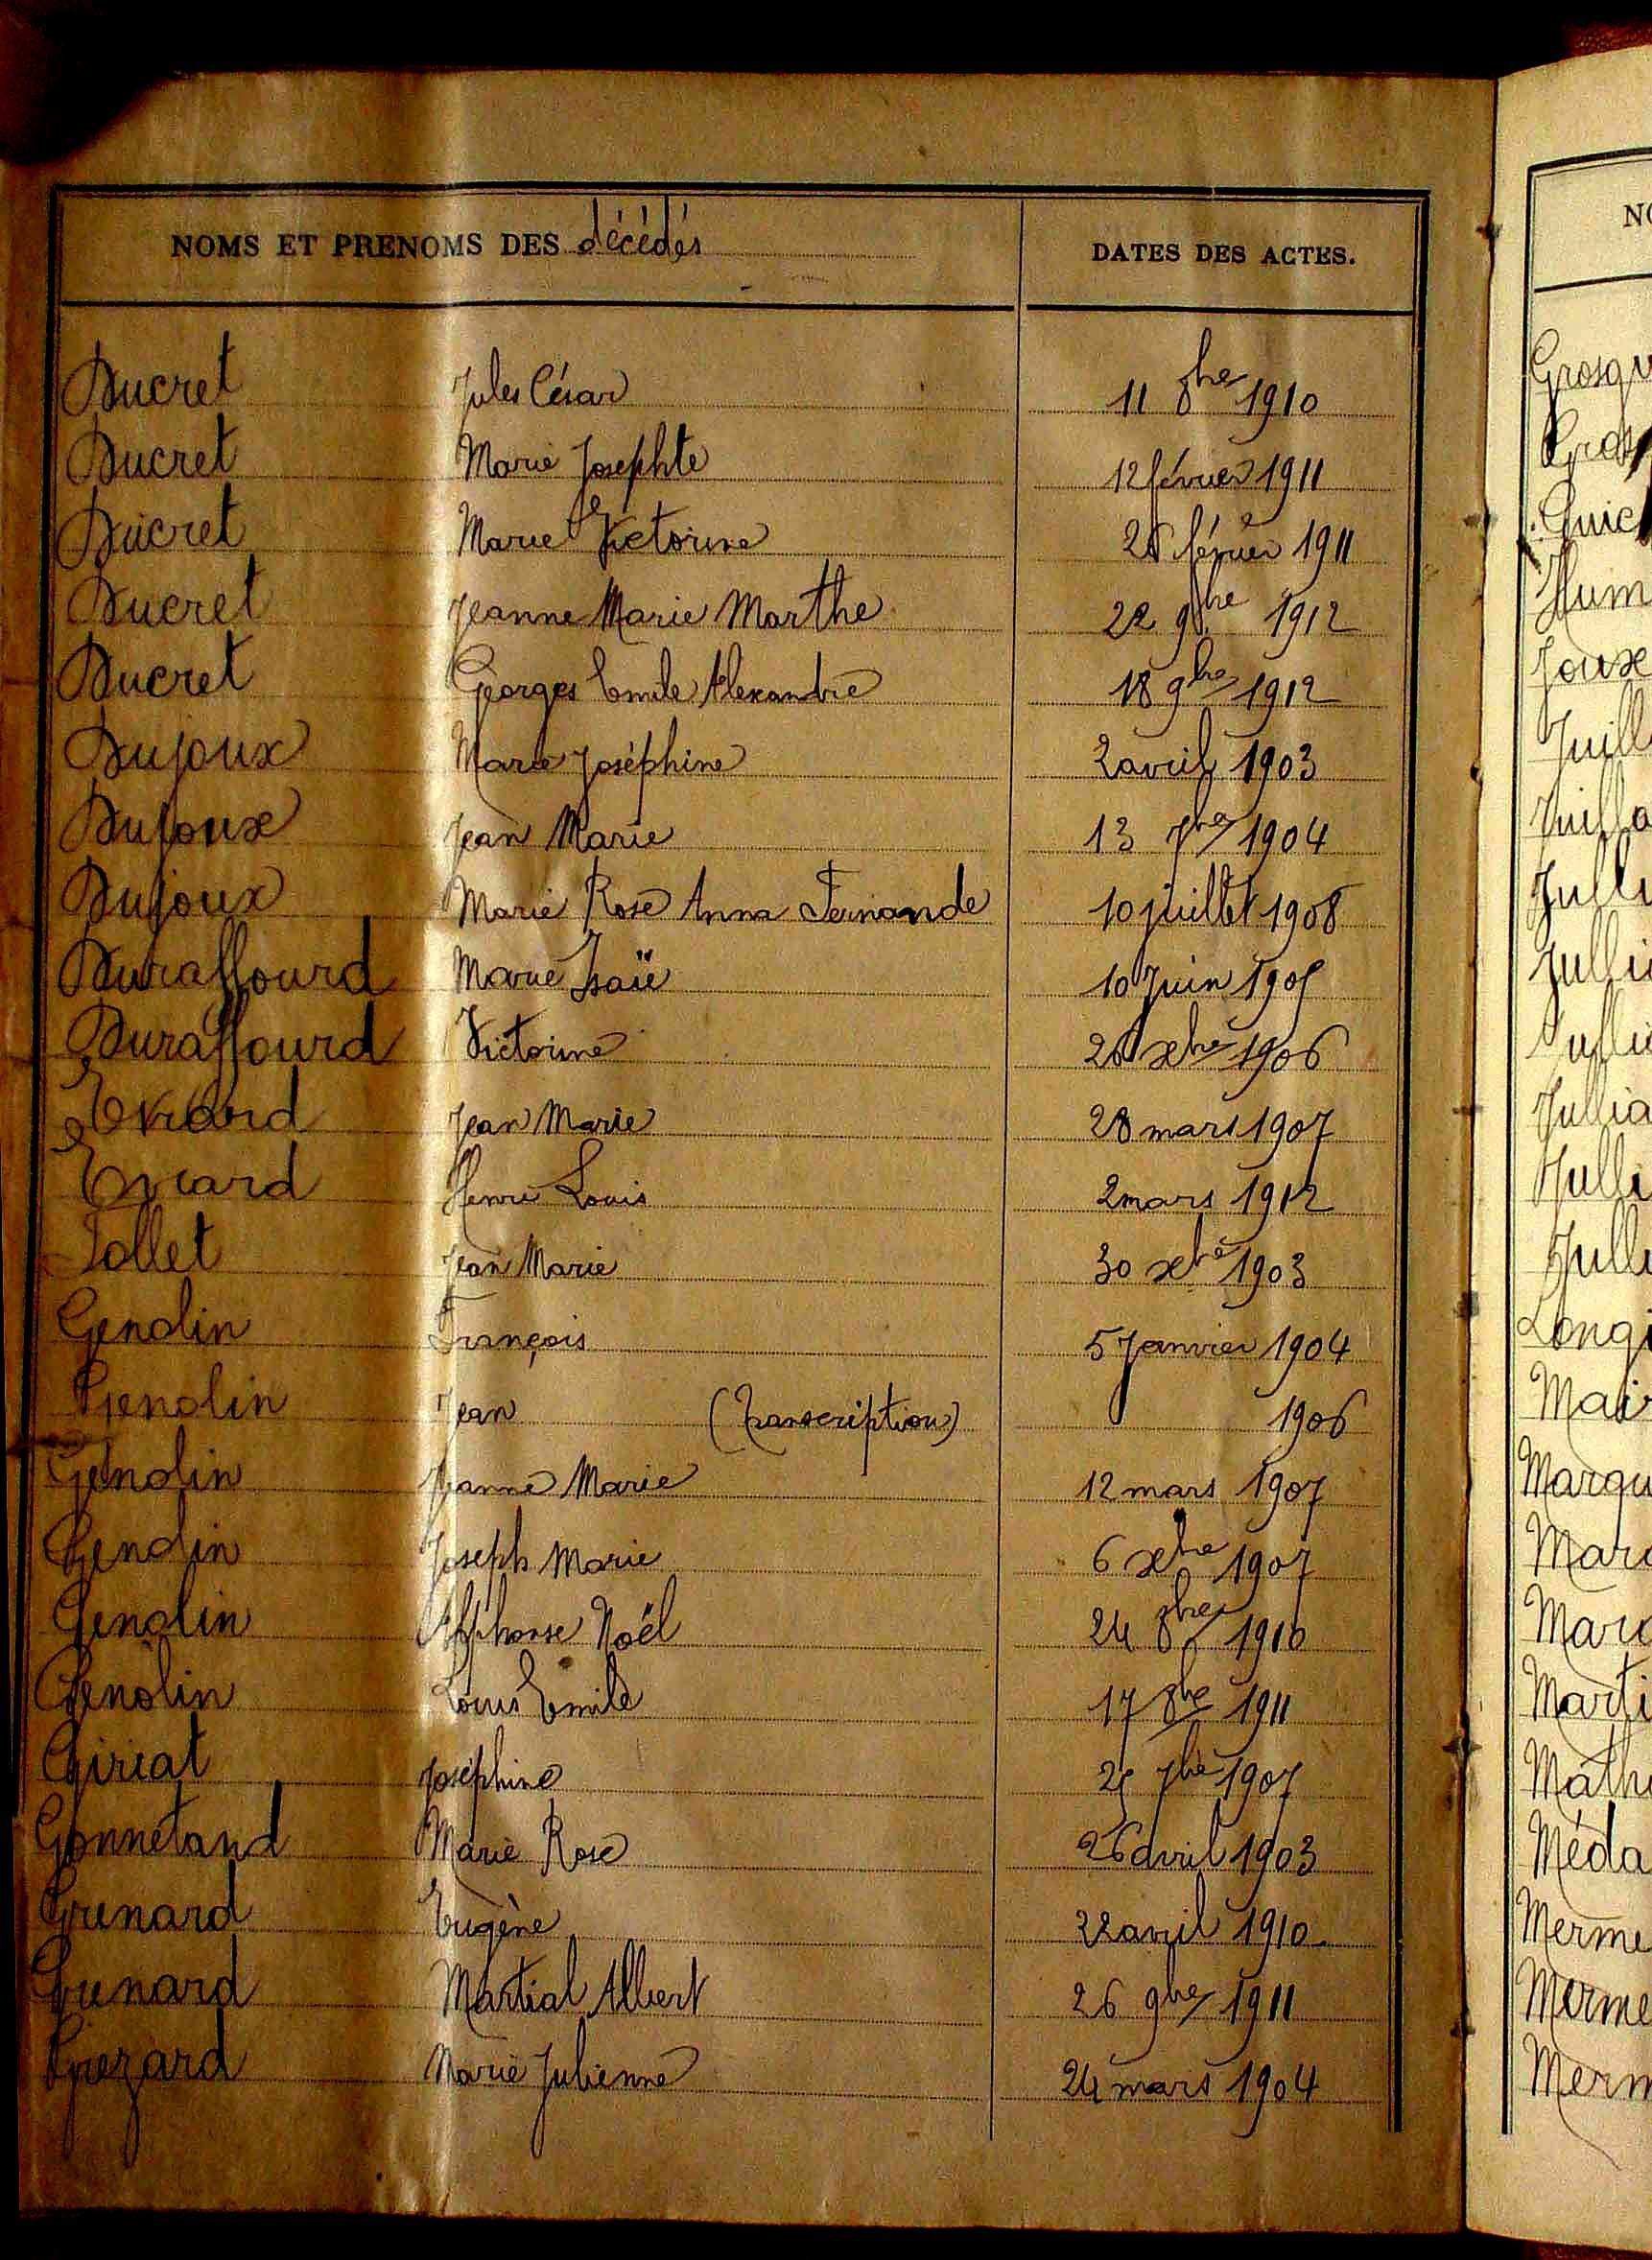 NOMS ET PRENOMS DES décédés DATES DES ACTES.
Ducret Jules César 11 8bre 1910
Ducret Marie Josephte 12 février 1911
Ducret Marie Victorine 26 février 1911
Ducret Jeanne Marie Marthe 22 9bre 1912
Ducret Georges Emile Alexandre 18 9bre 1912
Dujoux Marie Joséphine 2 avril 1903
Dujoux Jean Marie 13 7bre 1904
Dujoux Marie Rose Anna Fernande 10 juillet 1908
Duraffourd Marie Isaïe 10 Juin 1905
Duraffourd Victorine 26 xbre 1906
Evrard Jean Marie 28 mars 1907
Evrard Henri Louis 2 mars 1912
Follet Jean Marie 30 xbre 1903
Genolin François 5 Janvier 1904
Genolin Jean (Transcription) 1906
Genolin Jeanne Marie 12 mars 1907
Genolin Joseph Marie 6 xbre 1907
Genolin Alphonse Noël 24 8bre 1910
Genolin Louis Emile 17 8bre 1911
Giriat Joséphine 25 7bre 1907
Gonnetand Marie Rose 26 avril 1903
Grenard Eugène 22 avril 1910
Grenard Martial Albert 26 9bre 1911
Grezard Marie Julienne 24 mars 1904
NO
Grosgu
Gros
Guic
Hum
Joux
Juill
Juilla
Julli
Jullia
Julli
Longe
Mair
Marqu
Marc
Marti
Math
Méda
Merme
Merme
Merm